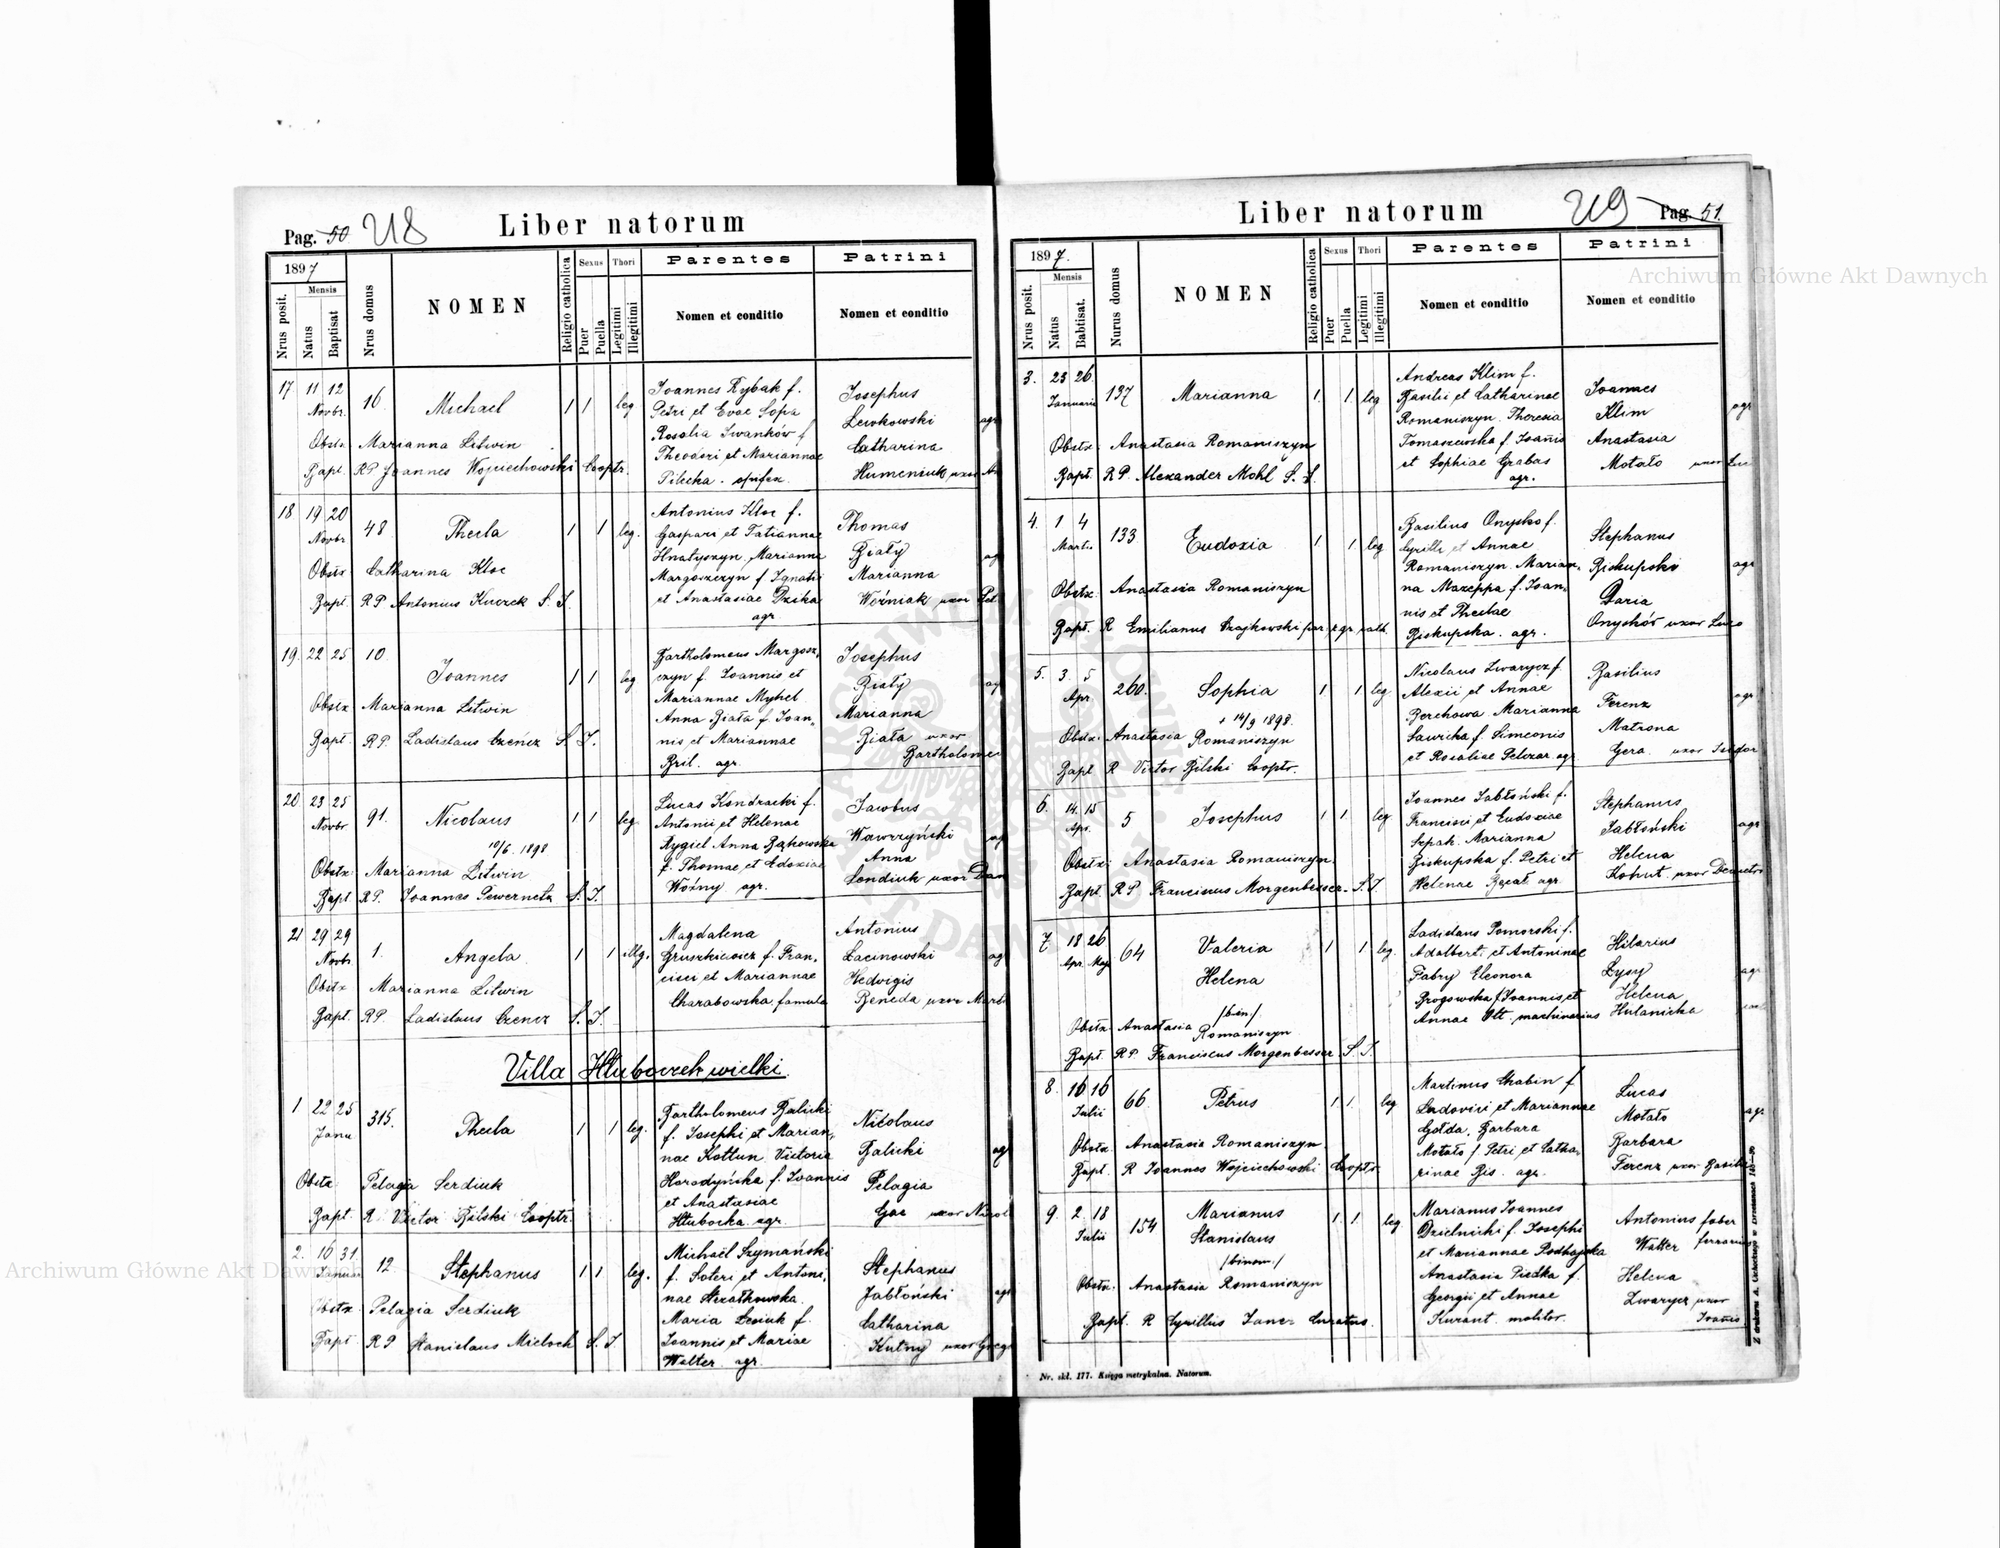 Pag. 50 218
Liber natorum
1897
Nrus posit.
Mensis
Natus
Baptisat
Nrus domus
NOMEN
Religio catholica
Sexus
Puer
Puella
Thori
Legitimi
Illegitimi
Parentes
Nomen et conditio
Patrini
Nomen et conditio
17 11 12 Novbr. 16 Michael 1 1 leg
Joannes Rybak f.
Petri et Evae Sopa
Rosalia Iwanków f
Theodori et Mariannae
Pilecka . opifex.
Josephus
Lewkowski agr
Catharina
Humeniuk uxor An
Obstx. Marianna Litwin
Bapt. RP Joannes Wojciechowski Cooptr.
18 19 20 Novbr 48 Thecla 1 1 leg.
Antonius Kloc f.
Gaspari et Tatiannae
Hnatyszyn Marianna
Margoszczyn f Ignatii
et Anastasiae Dzika
agr
Thomas
Biały ag
Marianna
Woźniak uxor Pet
Obstx Catharina Kloc
Bapt. RP Antonius Kuczek S. J.
19. 22 25 10 Joannes 1 1 leg
Bartholomeus Margosz,
czyn f. Joannis et
Mariannae Myhel
Anna Biała f. Joan,
nis et Mariannae
Bril. agr.
Josephus
Biały ag
Marianna
Biała uxor
Bartholomei
Obstx Marianna Litwin
Bapt. RP. Ladislaus Czencz S. J.
20 23 25 Novbr 91. Nicolaus 1 1 leg
10/6. 1898
Lucas Kondracki f.
Antonii et Helenae
Rygiel Anna Bąkowska
f. Thomae et Edoxiae
Woźny agr.
Jacobus
Wawrzyński ag
Anna
Sendiuk uxor Dan
Obstx. Marianna Litwin
Bapt RP. Joannes Pewernetz S. J.
21 29 29 Novbr. 1. Angela 1 1 illg.
Magdalena
Gruszkiewicz f. Fran,
cisci et Mariannae
Charabowska, famula
Antonius
Lacinowski ag
Hedvigis
Beneda uxor Marti
Obstx Marianna Litwin
Bapt. RP. Ladislaus Czencz S. J.
Villa Hłuboczek wielki.
1 22 25 Janu 315. Thecla 1 1 leg.
Bartholomeus Balicki
f. Josephi et Marian,
nae Kottun Victoria
Horodyńska f. Joannis
et Anastasiae
Hłubocka agr.
Nicolaus
Balicki ag
Pelagia
Gac uxor Nicol
Obstx. Pelagia Serdiuk
Bapt. R. Victor Bilski Cooptr.
2. 16 31 Januar 12 Stephanus 1 1 leg.
Michaël Szymański
f. Soteri et Antoni,
nae Strzałkowska.
Maria Seniuk f.
Joannis et Mariae
Walter agr.
Stephanus
Jabłoński ag
Catharina
Kutny uxor Greg
Obstx Pelagia Serdiuk
Bapt. RP Stanislaus Mieloch S. J.
Liber natorum
219 Pag. 51.
1897.
Nrus posit.
Mensis
Natus
Babtisat.
Nurus domus
NOMEN
Religio catholica
Sexus
Puer
Puella
Thori
Legitimi
Illegitimi
Parentes
Nomen et conditio
Patrini
Nomen et conditio
3. 23 26. Januarii 137 Marianna 1. 1. leg
Andreas Klim f.
Basilii et Catharinae
Romaniszyn. Theresia
Tomaszewska f. Joanis
et Sophiae Grabas
agr.
Joannes
Klim agr
Anastasia
Motało uxor Luc
Obstx: Anastasia Romaniszyn
Bapt. RP. Alexander Mohl S. J.
4. 1 4 Martii 133 Eudoxia 1 1. leg
Basilius Onysko f.
Cyrilli et Annae
Romaniszyn. Marian,
na Mazeppa f. Joan,
nis et Theclae
Biskupska. agr.
Stephanus
Biskupski agr
Daria
Onyskór uxor Luco
Obstx: Anastasia Romaniszyn
Bapt. R Emilianus Czajkowski par. gr. cath.
5. 3. 5 Apr. 260. Sophia 1 1 leg
+ 14/9 1898.
Nicolaus Zwarycz f.
Alexii et Annae
Berehowa Marianna
Saurika f. Simeonis
et Rosaliae Pelczar agr
Basilius
Ferenz agr
Matrona
Gera. uxor Isidor
Obstx. Anastasia Romaniszyn
Bapt R Victor Bilski Cooptr.
6. 14. 15 Apr. 5 Josephus 1 1. leg
Joannes Jabłoński f.
Francisci et Eudoxiae
Szpak. Marianna
Biskupska f. Petri et
Helenae Bęcał agr.
Stephanus
Jabłoński agr
Helena
Kohut. uxor Demetri
Obstx: Anastasia Romaniszyn.
Bapt. RP Franciscus Morgenbesser. S. J.
7 18 26 Apr. Maji 64 Valeria 1 1 leg.
Helena
/bin/.
Ladislaus Pomorski f.
Adalberti et Antoninae
Fabry Eleonora
Brogowska f. Joannis et
Annae Ott. machinarius
Hilarius
Łysy agr
Helena
Hulanicka
Obstx. Anastasia Romaniszyn
Bapt. RP. Franciscus Morgenbesser S. J.
8. 16 16 Julii 66 Petrus 1. 1. leg
Martinus Chabin f
Ludovici et Mariannae
Gołda, Barbara
Motało f Petri et Catha,
rinae Bis. agr.
Lucas
Motało agr
Barbara
Ferenz uxor Basilii
Obstx. Anastasia Romaniszyn
Bapt. R Joannes Wojciechowski Cooptr.
9. 2. 18 Julii 154 Marianus 1. 1. leg
Stanislaus
/binom/
Marianus Joannes
Dzielnicki f. Josephi
et Mariannae Podhajska
Anastasia Piedka f.
Georgii et Annae
Kurant. molitor.
Antonius faber
Walter ferrarius
Helena
Zwarycz uxor
Joanis.
Obstx. Anastasia Romaniszyn
Bapt. R Cyrillus Janer Curatus.
Nr. skł. 177. Księga metrykalna. Natorum.
Archiwum Główne Akt Dawnych
Archiwum Główne Akt Dawnych